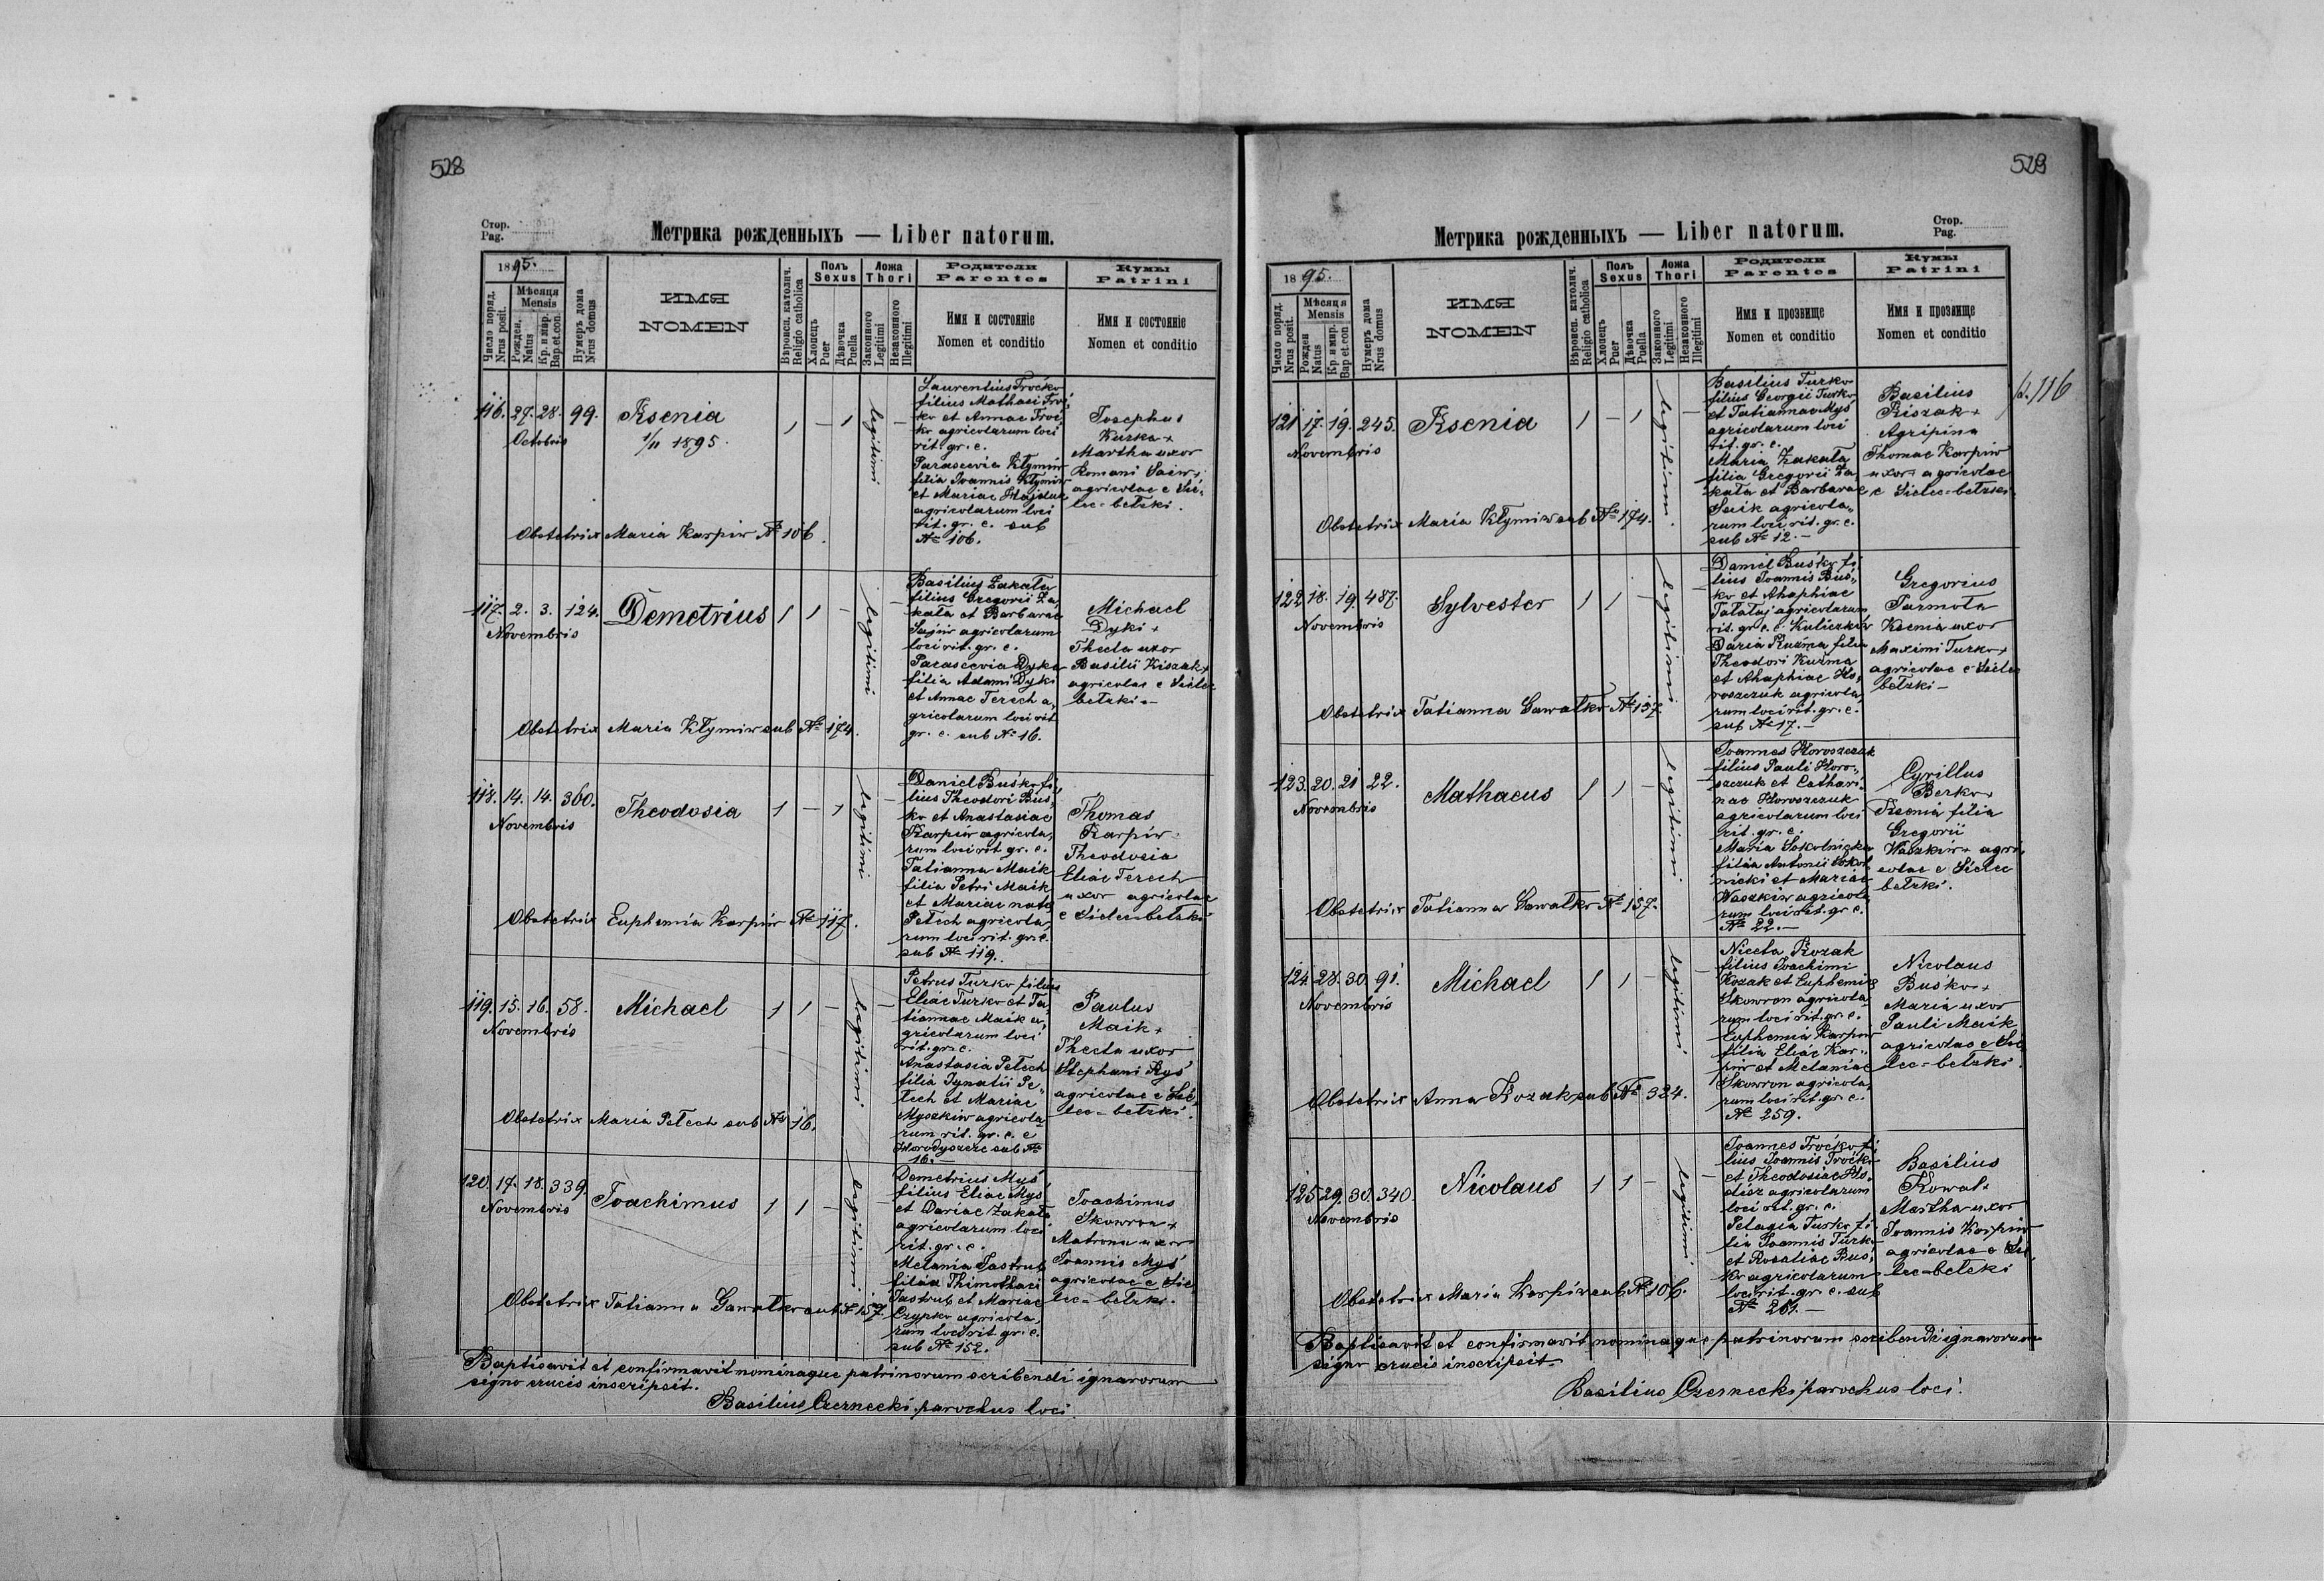 528
Стор.
Pag.
Метрика рожденныхъ — Liber natorum.
1895.
Число поряд.
Nrus posit.
Мѣсяця
Mensis
Рожден.
Natus
Кр. и мир.
Bap. et con.
Нумеръ дома
Nrus domus
ИМЯ
NOMEN
Вѣроисп. католич.
Religio catholica
Полъ
Sexus
Хлопецъ
Puer
Дѣвочка
Puella
Ложа
Thori
Законного
Legitimi
Незаконного
Illegitimi
Родители
Parentes
Имя и состояніе
Nomen et conditio
Кумы
Patrini
Имя и состояніе
Nomen et conditio
116. 27. 28. 99.
Octobris
Ksenia
1/11 1895.
1 – 1
legitimi
–
Laurentius Troćko
filius Mathaei Troć-
ko et Annae Troć-
ko agricolarum loci
rit. gr. c.
Parascevia Kłymiw
filia Joannis Kłymiw
et Mariae Hajduk
agricolarum loci
rit. gr. c. sub
№ 106.
Josephus
Kuzka +
Martha uxor
Romani Saiw +
agricolae e Sie-
lec-bełzki.
Obstetrix Maria Karpiw № 106.
117. 2. 3. 124.
Novembris
Demetrius
1 1 –
legitimi
–
Basilius Zakała
filius Gregorii Za
kała et Barbarae
Sajiw agricolarum
loci rit. gr. c.
Parascevia Dyka
filia Adami Dyki
et Annae Terech a,
gricolarum loci rit
gr. c. sub № 16.
Michael
Dyki +
Thecla uxor
Basilii Kiszak +
agricolae e Sielec
bełzki –
Obstetrix Maria Kłymiw sub № 174.
118. 14. 14. 360.
Novembris
Theodosia
1 – 1
legitimi
–
Daniel Buśko fi,
lius Theodori Buś,
ko et Anastasiae
Karpiw agricola,
rum loci rit. gr. c.
Tatianna Maik
filia Petri Maik
et Mariae nata
Pełech agricola,
rum loci rit. gr. c.
sub № 119.
Thomas
Karpiw
Theodosia
Eliae Terech
uxor agricolae
e Sielec-bełzki
Obstetrix Euphemia Karpiw № 117.
119. 15. 16. 58.
Novembris
Michael
1 1 –
legitimi
–
Petrus Turko filius
Eliae Turko et Ta,
tiannae Maik a,
gricolarum loci
rit. gr. c.
Anastasia Pełech
filia Ignatii Pe"
łech et Mariae
Myszkiw agricola
rum rit. gr. c. e
Horodyszcze sub №
16. –
Paulus
Maik +
Thecla uxor
Stephani Kyś
agricolae e Sie,
lec-bełzki.
Obstetrix Maria Pełech sub № 16.
120. 17. 18. 339.
Novembris
Joachimus
1 1 –
legitimi
–
Demetrius Myś
filius Eliae Myś
et Dariae Zakała
agricolarum loci
rit. gr. c.
Melania Jastrub
filia Thimothaei
Jastrub et Mariae
Czypko agricola,
rum loci rit. gr. c.
sub № 152.
Joachimus
Skowron +
Matrona uxor
Joannis Myś
agricolae e Sie,
lec-bełzki.
Obstetrix Tatianna Gawałko sub № 157.
Baptisavit et confirmavit nominaque patrinorum scribendi ignarorum
signo crucis inscripsit.
Basilius Czernecki parochus loci.
529
Стор.
Pag.
Метрика рожденныхъ — Liber natorum.
1895.
Число поряд.
Nrus posit.
Мѣсяця
Mensis
Рожден
Natus
Кр. и мир.
Bap. et con
Нумеръ дома
Nrus domus
ИМЯ
NOMEN
Вѣроисп. католич.
Religio catholica
Полъ
Sexus
Хлопецъ
Puer
Дѣвочка
Puella
Ложа
Thori
Законного
Legitimi
Незаконного
Illegitimi
Родители
Parentes
Имя и прозвище
Nomen et conditio
Кумы
Patrini
Имя и прозвище
Nomen et conditio
121 17. 19. 245.
Novembris
Ksenia
1 – 1
legitimi
–
Basilius Turko
filius Georgii Turko
et Tatiannae Myś
agricolarum loci
rit. gr. c.
Maria Zakała
filia Gregorii Za
kała et Barbarae
Saik agricola,,
rum loci rit. gr. c.
sub № 12. –
Basilius
Kiszak +
Agripina
Thomae Karpiw
uxor agricolae
e Sielec-bełzki.
116
Obstetrix Maria Kłymiw sub № 174.
122 18. 19. 487.
Novembris
Sylvester
1 1
legitimi
Daniel Buśko fi
lius Joannis Buś,,
ko et Ahaphiae
Tałałaj agricolarum
rit. gr. c. e Kuliczkiw
Daria Kuźma filia
Theodori Kuźma
et Ahaphiae Ho,
roszczuk agricola,
rum loci rit. gr. c.
sub № 17. –
Gregorius
Jarmoła
Ksenia uxor
Maximi Turko +
agricolae e Sielec
bełzki –
Obstetrix Tatianna Gawałko № 157.
123. 20. 21 22.
Novembris
Mathaeus
1 1 –
legitimi
–
Joannes Horoszczuk
filius Pauli Horo-
szczuk et Cathari-
nae Horoszczuk
agricolarum loci
rit. gr. c.
Maria Sokolnicka
filia Antonii Sokol
nicki et Mariae
Waszkiw agricola
rum loci rit. gr. c.
№ 22. –
Cyrillus
Berko +
Ksenia filia
Gregorii
Waszkiw + agri,
colae e Sielec
bełzki.
Obstetrix Tatianna Gawałko № 157.
124. 28. 30. 91.
Novembris
Michael
1 1 –
legitimi
–
Niceta Kozak
filius Joachimi
Kozak et Euphemiae
Skowron agricola
rum loci rit. gr. c.
Euphemia Karpiw
filia Eliae Kar-
piw et Melaniae
Skowron agricola,
rum loci rit. gr. c.
№ 259.
Nicolaus
Buśko +
Maria uxor
Pauli Maik
agricolae e Sie,
lec-bełzki.
Obstetrix Anna Kozak sub № 324.
125 29. 30. 340.
Novembris
Nicolaus
1 1 –
legitimi
–
Joannes Troćko fi,
lius Joannis Troćko
et Theodosiae Ho,
diór agricolarum
loci rit. gr. c.
Pelagia Turko fi
lia Joannis Turko
et Rosaliae Buś,
ko agricolarum
loci rit. gr. c. sub
№ 261. –
Basilius
Kowal +
Martha uxor
Joannis Karpiw
agricolae e Sie,
lec-bełzki
Obstetrix Maria Karpiw sub № 106.
Baptisavit et confirmavit nominaque patrinorum scribendi ignarorum
signo crucis inscripsit.
Basilius Czernecki parochus loci.